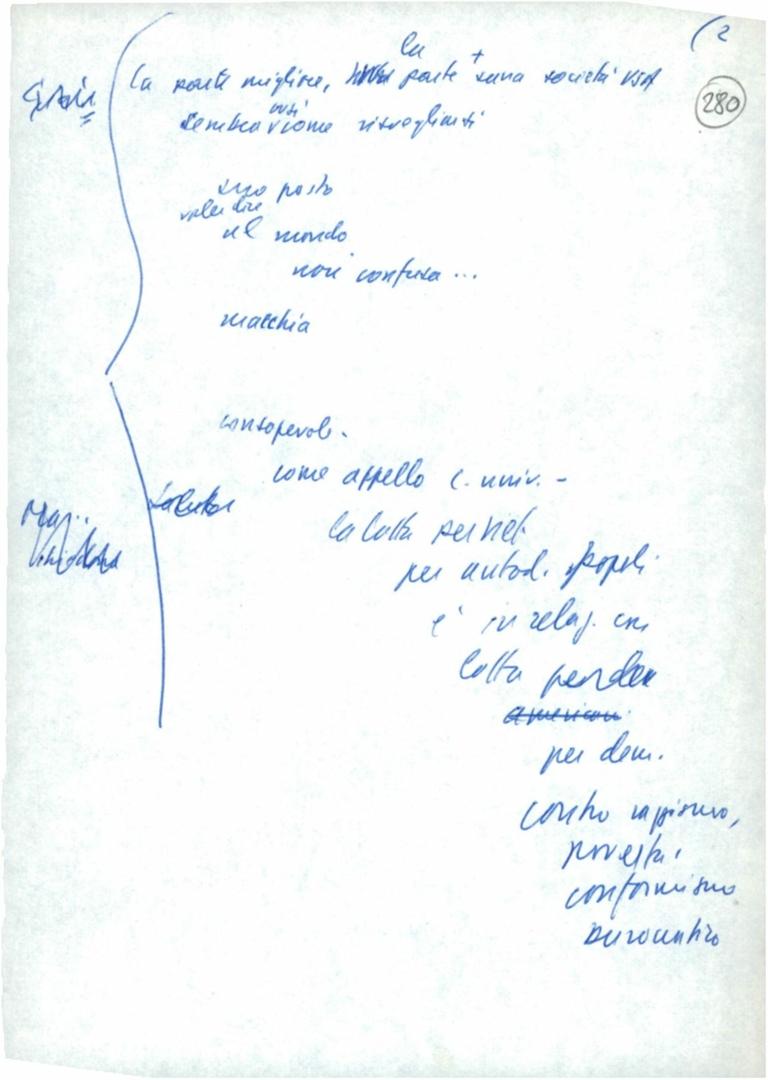 (2
280
la
la parte migliore, parte + sana società USA
così
sembra risvegliarsi
suo posto
vale dire
nel mondo
non confusa ...
macchia
consapevole.
come appello c. univ. -
la lotta per Viet.
per autod. popoli
è in relaz. con
lotta per dem
american.
per dem.
contro razzismo,
povertà,
conformismo
burocratico